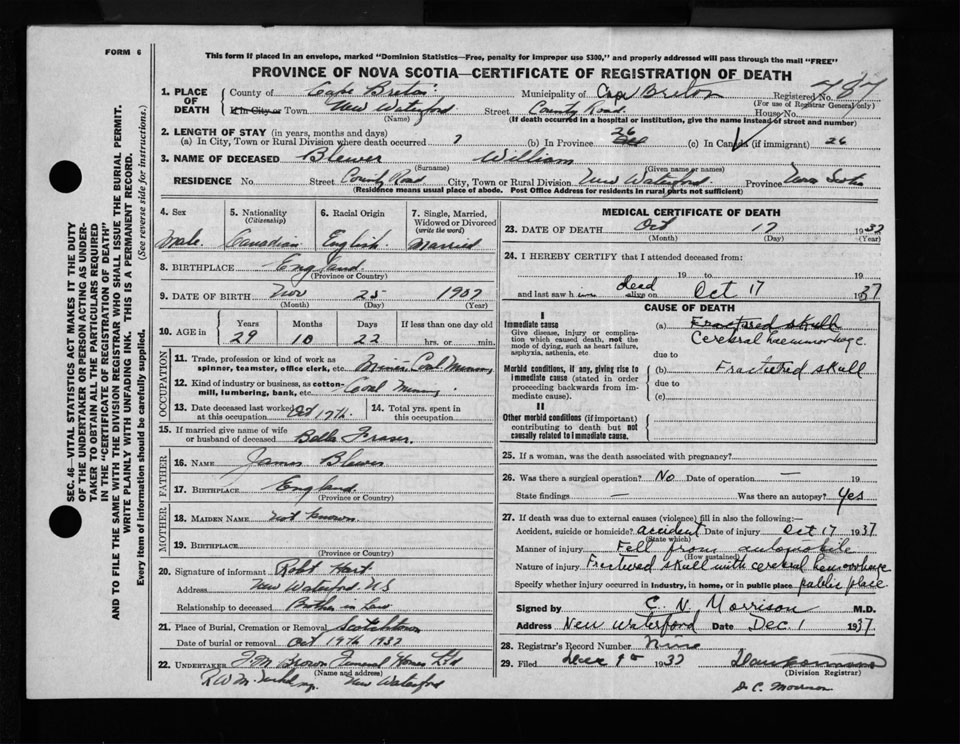 FORM 6
This form if placed in an envelope, marked "Dominion Statistics—Free, penalty for improper use $300," and properly addressed will pass through the mail "FREE"
PROVINCE OF NOVA SCOTIA—CERTIFICATE OF REGISTRATION OF DEATH
1. PLACE OF DEATH County of Cape Breton Municipality of Cape Breton Registered No. 787
(For use of Registrar General only)
If in City or Town New Waterford Street County Road House No.
(Name) (If death occurred in a hospital or institution, give the name instead of street and number)
2. LENGTH OF STAY (in years, months and days)
(a) In City, Town or Rural Division where death occurred 7 (b) In Province 26 (c) In Canada (if immigrant) 26
3. NAME OF DECEASED Blewer William
(Surname) (Given name or names)
RESIDENCE No. Street County Road City, Town or Rural Division New Waterford Province Nova Scotia
(Residence means usual place of abode. Post Office Address for residents in rural parts not sufficient)
4. Sex Male
5. Nationality (Citizenship) Canadian
6. Racial Origin English
7. Single, Married, Widowed or Divorced (write the word) Married
8. BIRTHPLACE England
(Province or Country)
9. DATE OF BIRTH Nov 25 1907
(Month) (Day) (Year)
10. AGE in Years 29 Months 10 Days 22 If less than one day old hrs. or min.
OCCUPATION
11. Trade, profession or kind of work as spinner, teamster, office clerk, etc. Miner Coal Mining
12. Kind of industry or business, as cotton-mill, lumbering, bank, etc. Coal Mining
13. Date deceased last worked at this occupation Oct 17th
14. Total yrs. spent in this occupation
15. If married give name of wife or husband of deceased Bella Fraser
FATHER
16. NAME James Blewer
17. BIRTHPLACE England
(Province or Country)
MOTHER
18. MAIDEN NAME Not known
19. BIRTHPLACE
(Province or Country)
20. Signature of informant Robt Hart
Address New Waterford N.S
Relationship to deceased Brother in Law
21. Place of Burial, Cremation or Removal Scotchtown
Date of burial or removal Oct 19th 1937
22. UNDERTAKER F.M. Brown Funeral Homes Ltd
(Name and address)
New Waterford
MEDICAL CERTIFICATE OF DEATH
23. DATE OF DEATH Oct 17 1937
(Month) (Day) (Year)
24. I HEREBY CERTIFY that I attended deceased from:
19 to 19
and last saw him dead alive on Oct 17 1937
CAUSE OF DEATH
I
Immediate cause
Give disease, injury or complication which caused death, not the mode of dying, such as heart failure, asphyxia, asthenia, etc
(a) Fractured skull
Cerebral haemorrhage
due to
Morbid conditions, if any, giving rise to immediate cause (stated in order proceeding backwards from immediate cause).
(b) Fractured skull
due to
(c)
II
Other morbid conditions (if important) contributing to death but not causally related to immediate cause.
25. If a woman, was the death associated with pregnancy?
26. Was there a surgical operation? No Date of operation — 19
State findings — Was there an autopsy? Yes
27. If death was due to external causes (violence) fill in also the following:—
Accident, suicide or homicide? accident Date of injury Oct 17 1937
(State which)
Manner of injury Fell from automobile
(How sustained)
Nature of injury Fractured skull with cerebral haemorrhage
Specify whether injury occurred in industry, in home, or in public place public place
Signed by C. N. Morrison M.D.
Address New Waterford Date Dec. 1 1937
28. Registrar's Record Number Nine
29. Filed Dec 9th 1937
(Division Registrar)
D. C. Morrison
SEC. 46—VITAL STATISTICS ACT MAKES IT THE DUTY OF THE UNDERTAKER OR PERSON ACTING AS UNDERTAKER TO OBTAIN ALL THE PARTICULARS REQUIRED IN THE "CERTIFICATE OF REGISTRATION OF DEATH"
AND TO FILE THE SAME WITH THE DIVISION REGISTRAR WHO SHALL ISSUE THE BURIAL PERMIT.
WRITE PLAINLY WITH UNFADING INK. THIS IS A PERMANENT RECORD.
Every item of information should be carefully supplied. (See reverse side for instructions.)